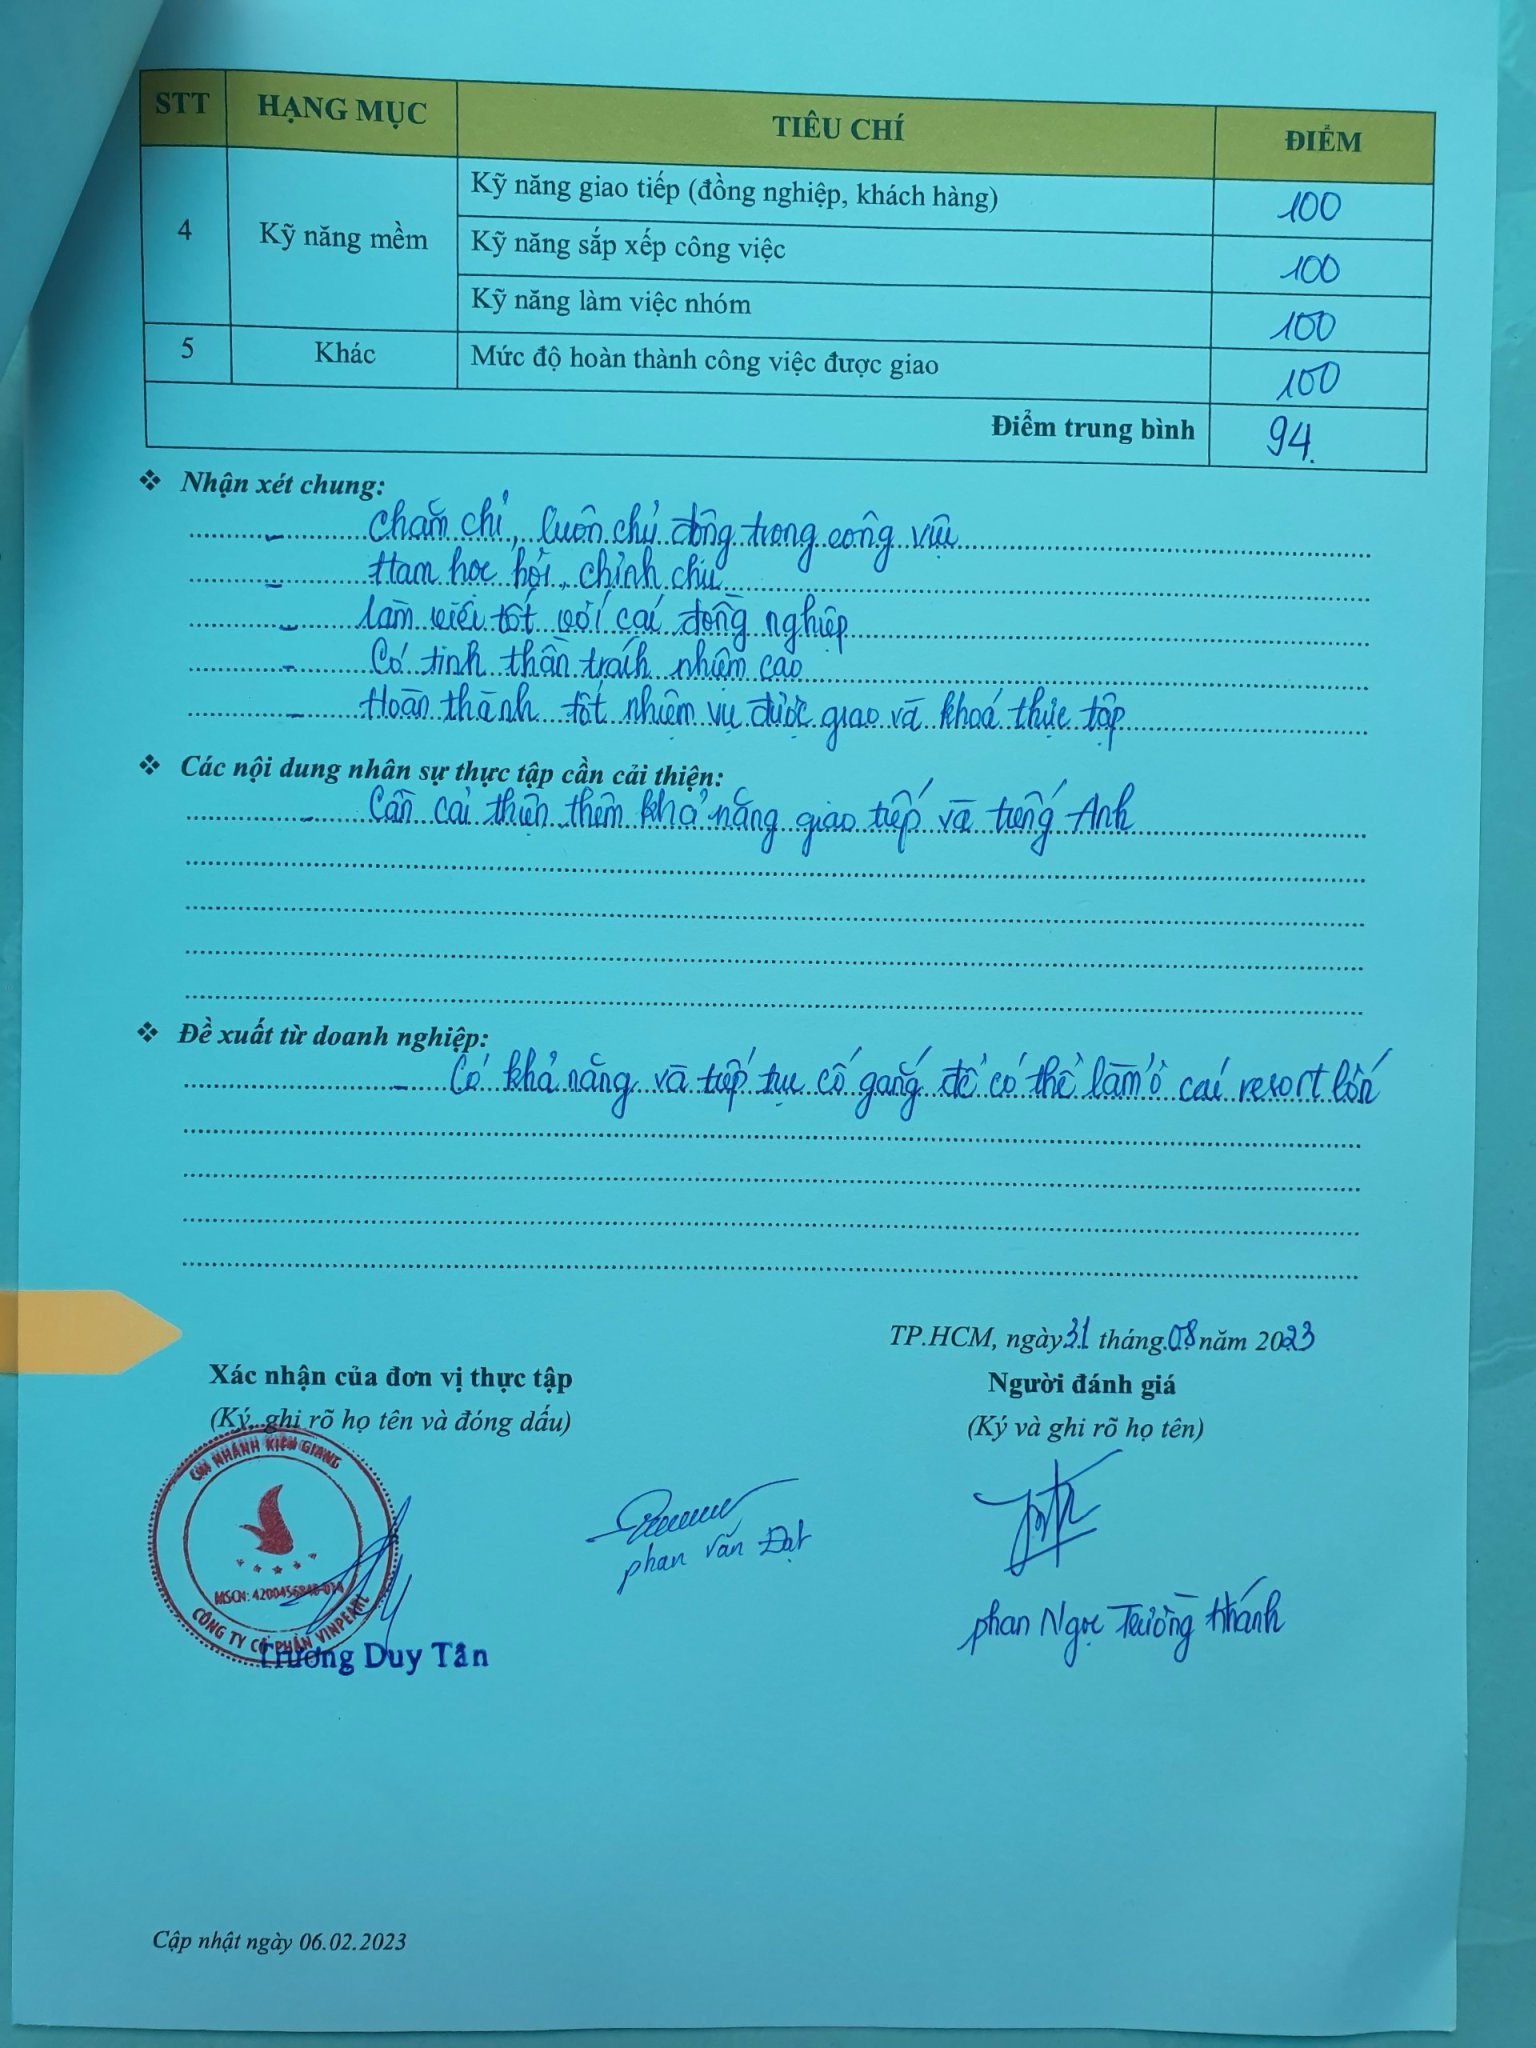 STT HẠNG MỤC TIÊU CHÍ ĐIỂM
4 Kỹ năng mềm Kỹ năng giao tiếp (đồng nghiệp, khách hàng) 100
Kỹ năng sắp xếp công việc 100
Kỹ năng làm việc nhóm 100
5 Khác Mức độ hoàn thành công việc được giao 100
Điểm trung bình 94.
❖ Nhận xét chung:
- Chăm chỉ, luôn chủ động trong công việc
- Ham học hỏi, chỉnh chu
- làm việc tốt với các đồng nghiệp
- Có tinh thần trách nhiệm cao
- Hoàn thành tốt nhiệm vụ được giao và khoá thực tập
❖ Các nội dung nhân sự thực tập cần cải thiện:
- Cần cải thiện thêm khả năng giao tiếp và tiếng Anh
❖ Đề xuất từ doanh nghiệp:
- Có khả năng và tiếp tục cố gắng để có thể làm ở các resort lớn
TP.HCM, ngày 31 tháng 08 năm 2023
Xác nhận của đơn vị thực tập
Người đánh giá
(Ký, ghi rõ họ tên và đóng dấu)
(Ký và ghi rõ họ tên)
CHI NHÁNH KIÊN GIANG
MSCN: 4200456848-014
CÔNG TY CỔ PHẦN VINPEARL
Trương Duy Tân
phan Văn Đạt
phan Ngọc Trường Khánh
Cập nhật ngày 06.02.2023